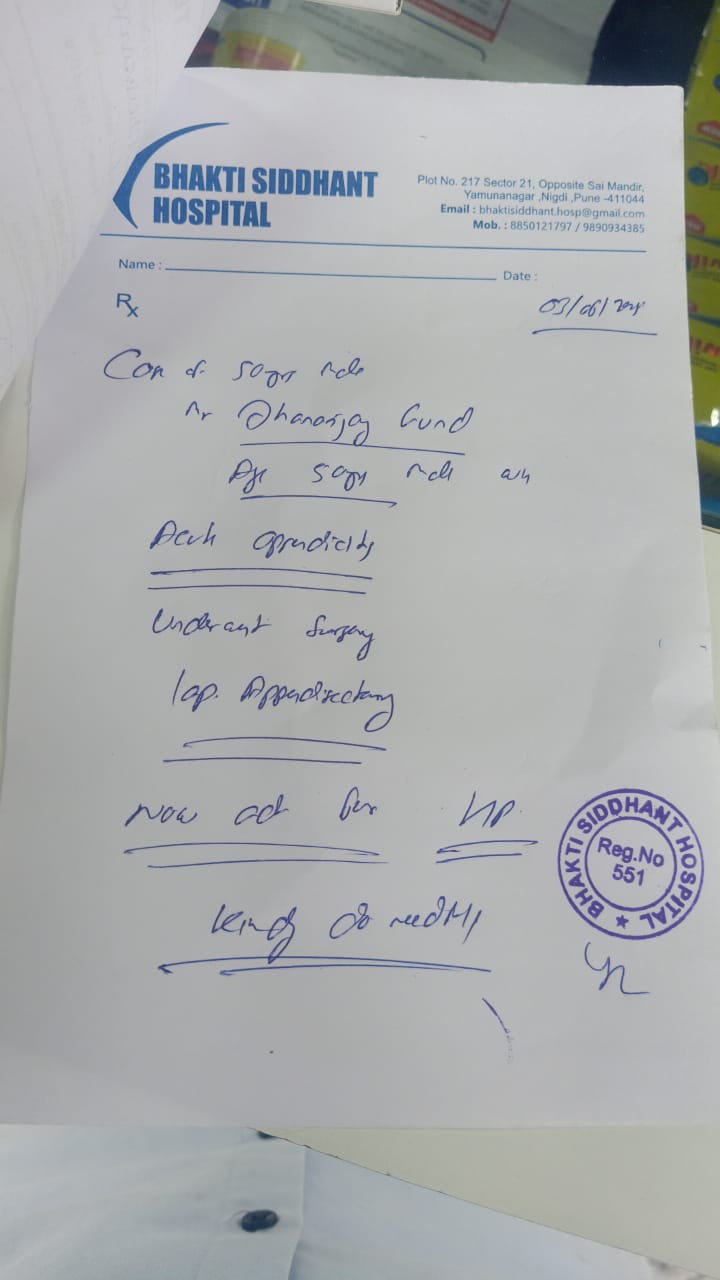 BHAKTI SIDDHANT
HOSPITAL
Plot No. 217 Sector 21, Opposite Sai Mandir,
Yamunanagar ,Nigdi ,Pune -411044
Email : bhaktisiddhant.hosp@gmail.com
Mob. : 8850121797 / 9890934385
Name :
Date :
Rx
03/06/
of 50yrs male
Mr Dhananjay Gund
Age 50yrs male
appendicitis
Underwent Surgery
lap. Appendisectomy
Now ad for HP.
Kindly do needful
BHAKTI SIDDHANT HOSPITAL
Reg.No
551